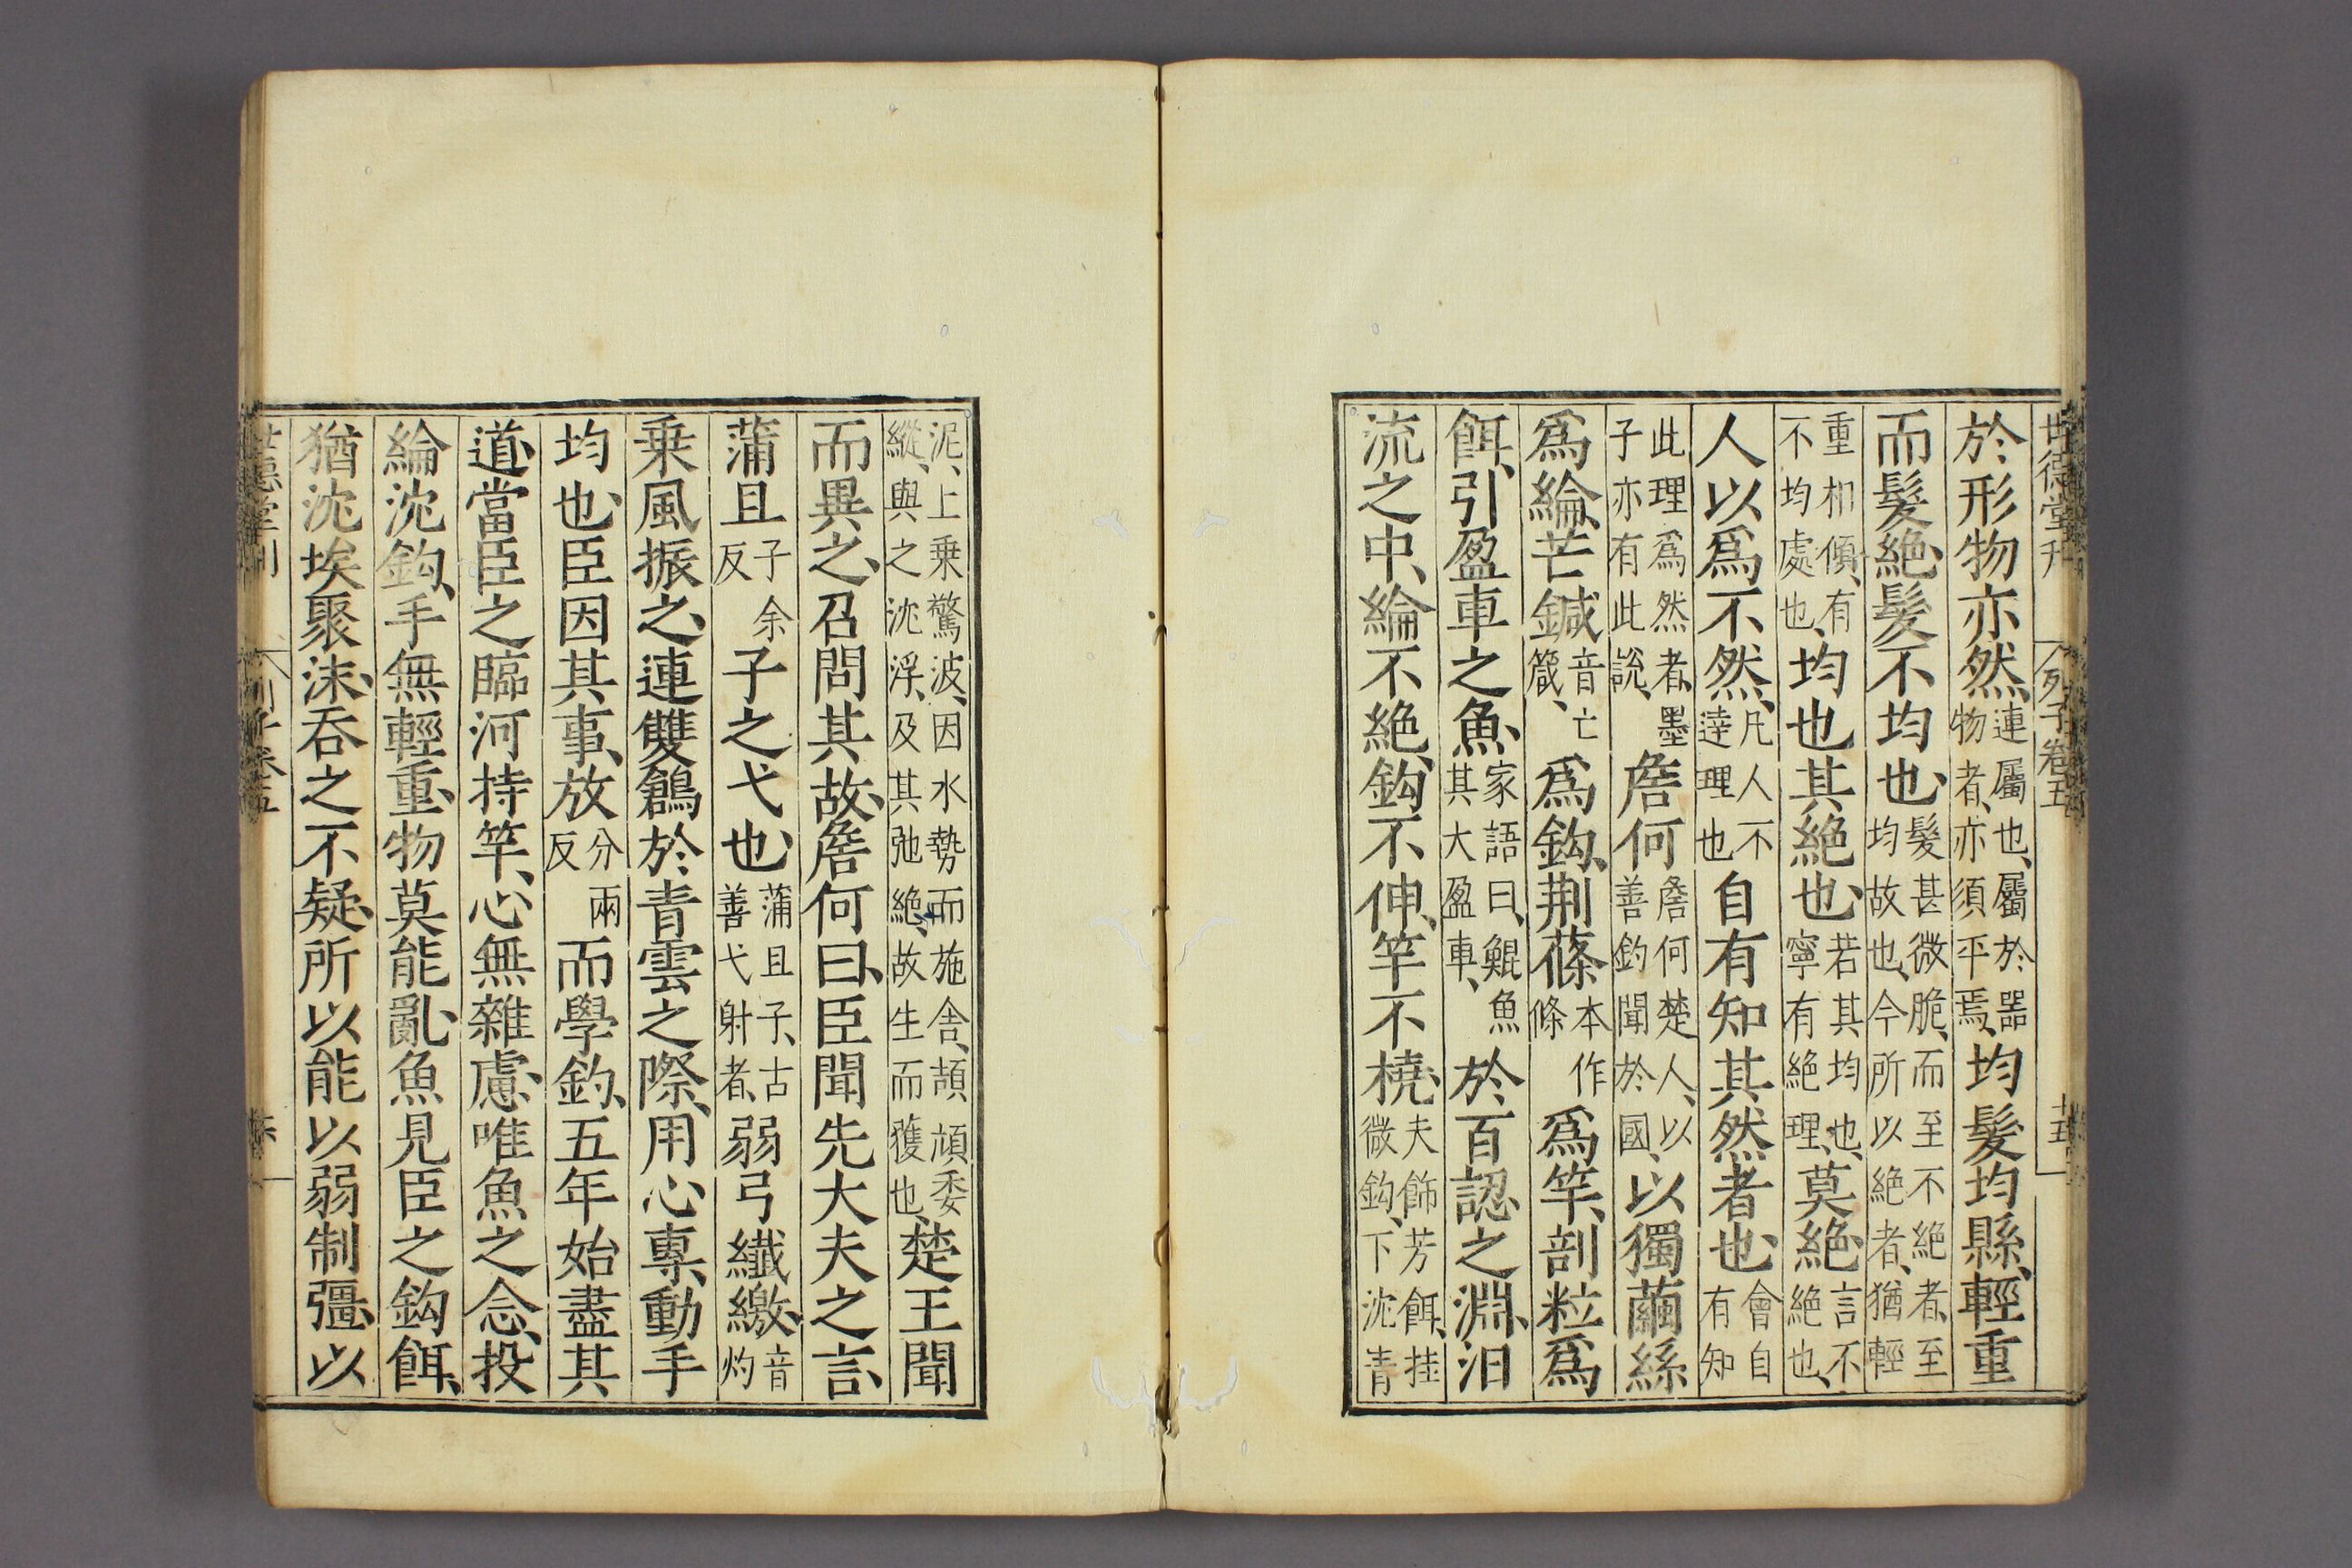 世德堂刊 列子卷五 十五
於形物亦然、連屬也、屬於器物者、亦須平焉、均髮均縣、輕重
而髮絕、髮不均也、髮甚微脆、而至不絕者、至均故也、今所以絕者、猶輕
重相傾、有不均處也、均也其絕也、若其均也、寧有絕理、莫絕、言不絕也、
人以爲不然、凡人不逹理也自有知其然者也、會自有知
此理爲然者、墨子亦有此說、詹何詹何楚人、以善釣聞於國、以獨繭絲
爲綸、芒鍼音亡箴、爲鈎、荆蓧本作條爲竿、剖粒爲
餌、引盈車之魚、家語曰、鯤魚其大盈車、於百認之淵、汩
流之中、綸不絕、鈎不伸、竿不橈、夫飾芳餌、挂微鈎、下沈青
泥、上乗驚波、因水勢而施舍、頡頏委縱、與之沈浮、及其弛絕、故生而獲也、楚王聞
而異之、召問其故、詹何曰、臣聞先大夫之言、
蒲且子余反子之弋也、蒲且子、古善弋射者、弱弓纎繳、音灼
乗風振之、連雙鶬於青雲之際、用心專、動手
均也、臣因其事、放分兩反而學釣、五年始盡其
道、當臣之臨河持竿、心無雜慮、唯魚之念、投
綸沈鈎、手無輕重、物莫能亂、魚見臣之鈎餌、
猶沈埃聚沫、吞之不疑、所以能以弱制彊、以
世德堂刊 列子卷五